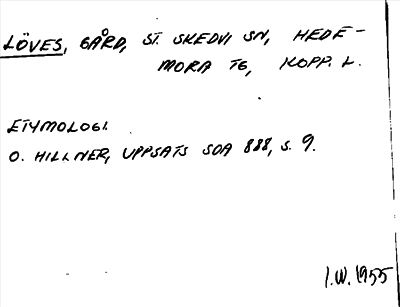 LÖVES, GÅRD, ST. SKEDVI SN, HEDE-
MORA TG, KOPP. L.
ETYMOLOGI.
O. HILLNER, UPPSATS SOA 888, S. 9.
I.W. 1955